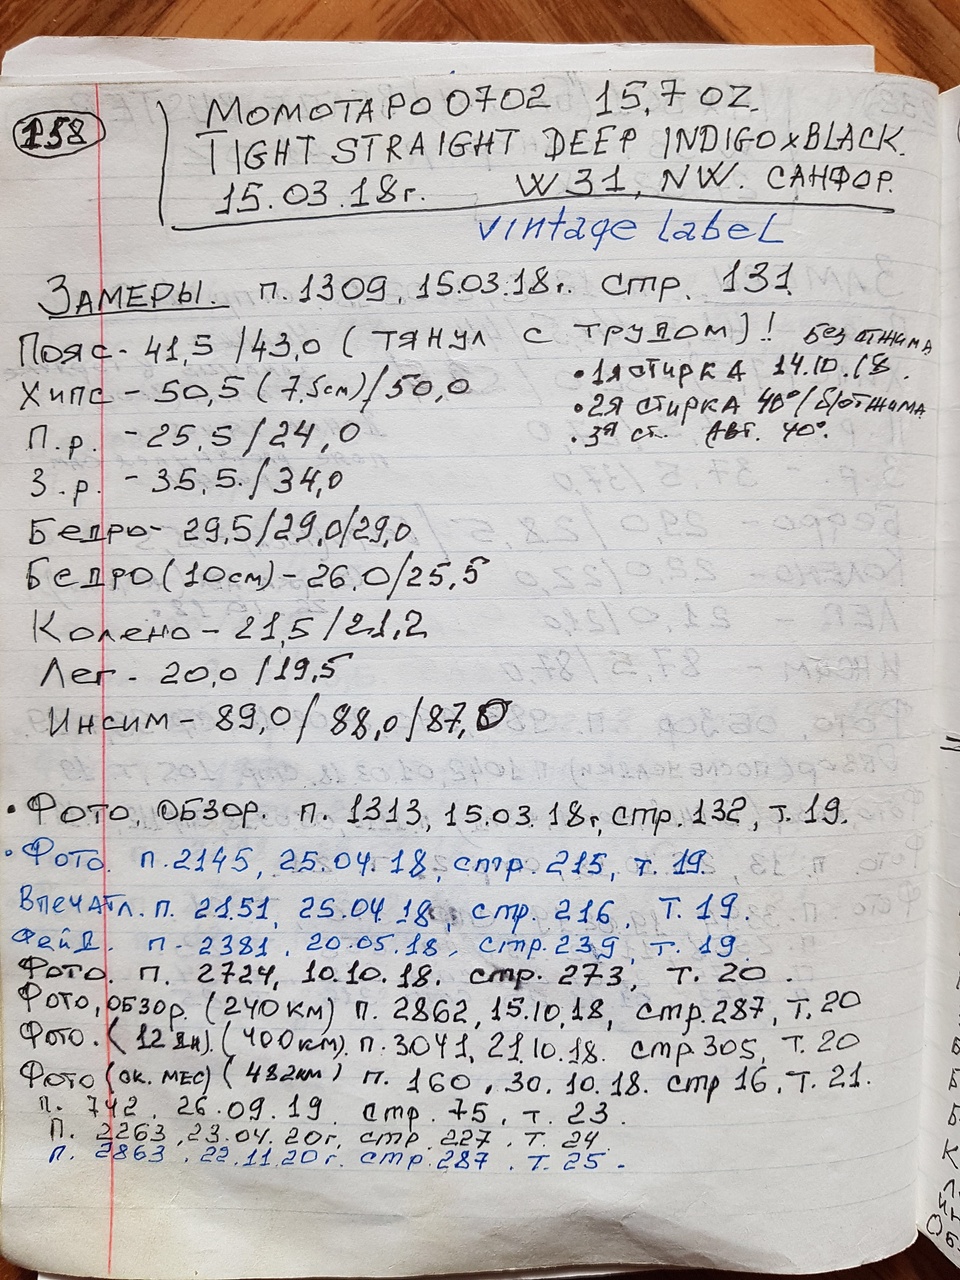 158
МОМОТАРО 0702 15,7 OZ.
TIGHT STRAIGHT DEEP INDIGO x BLACK.
15.03.18г. W31, NW. САНФОР.
vintage LabeL
ЗАМЕРЫ. п. 1309, 15.03.18г. стр. 131
Пояс - 41,5 / 43,0 (тянул с трудом)! Без отжима
Хипс - 50,5 (7,5см) / 50,0 • 1я стирка 14.10.18.
• 2я стирка 40°/б/отжима
П.р. - 25,5 / 24,0 • 3я ст. Авт. 40°.
З.р. - 35,5. / 34,0
Бедро - 29,5/29,0/29,0
Бедро (10см) - 26,0/25,5
Колено - 21,5 / 21,2
Лег - 20,0 / 19,5
Инсим - 89,0 / 88,0 / 87,0
• Фото, обзор. п. 1313, 15.03.18г, стр. 132, т. 19.
• Фото. п. 2145, 25.04.18, стр. 215, т. 19.
Впечатл. п. 2151, 25.04.18, стр. 216, Т. 19.
Фейд. п - 2381, 20.05.18, стр. 239, т. 19.
Фото. п. 2724, 10.10.18. стр. 273, т. 20.
Фото, обзор. (240 км) п. 2862, 15.10.18, стр. 287, т. 20
Фото. (12 дн). (400 км). п. 3041, 21.10.18. стр. 305, т. 20
Фото (ок. мес) (482 км) п. 160, 30.10.18. стр 16, т. 21.
п. 742. 26.09.19. стр. 75, т. 23.
п. 2263, 23.04.20г. стр. 227. т. 24
п. 2863, 22.11.20г. стр. 287. т. 25.